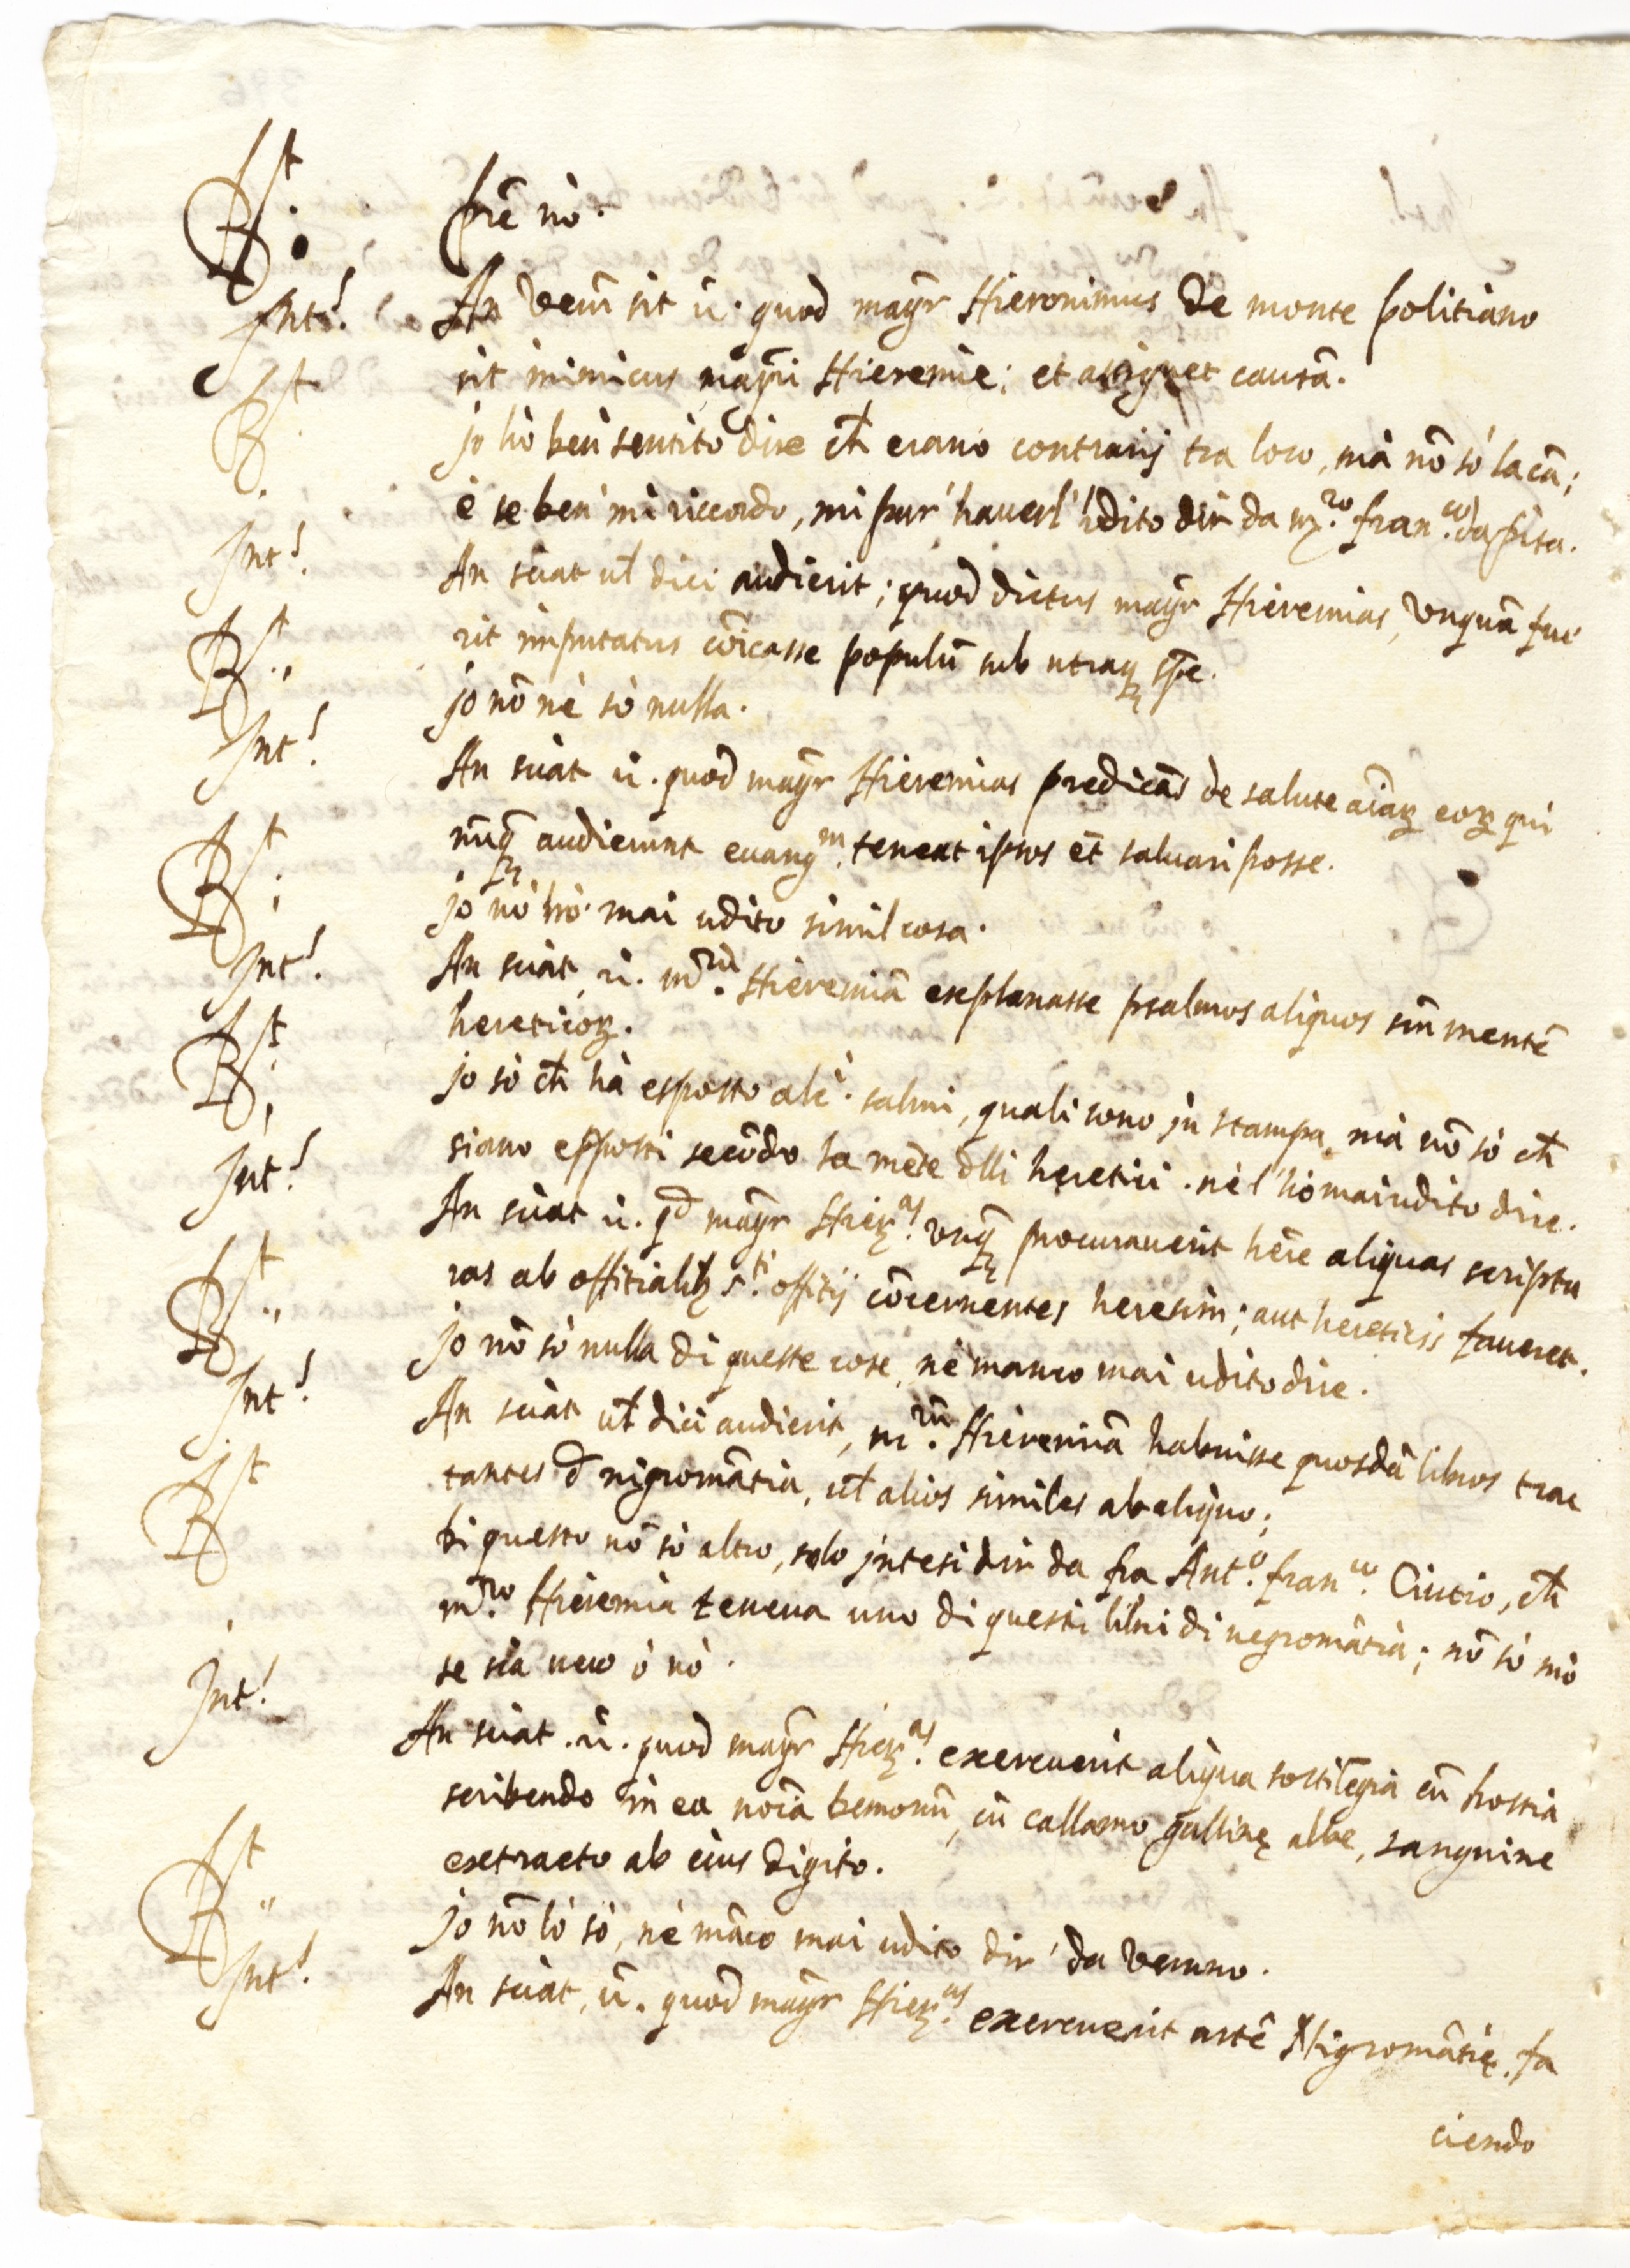 R.t
p̃re nò.
Int.s An verũ sit ũ. quod magr̃ Hieronimus de monte politiano
sit inimicus magr̃i Hieremie; et assignet causã.
R.t jo hò ben' sentito dire ch̃ erano contrarij tra loro, mà nõ sò la cã;
è se ben' mi riccordo, mi pur' haverl' udito dir da m.ro fran.co da pisa.
Int.s An sciat ul̃ dici audierit; quod dictus magr̃ Hieremias, unquã fue
rit imputatus cõicasse populũ sub utraq; sp̃e.
R.t jo nõ nè sò nulla.
Int.s An sciat ũ. quod magr̃ Hieremias predicãs de salute aĩaꝝ eoꝝ qui
nũq; audierunt evang.m teneat ipsos et̃ salvari posse.
R.t jo nõ hò mai udito simil cosa.
Int.s An sciat, ũ. m.rũ Hieremiã explanasse psalmos aliquos sm̃ mentẽ
hereticoꝝ.
R.t jo sò ch̃ hà esposto alc.i salmi, quali sono jn stampa, mà nõ sò ch̃
siano esposti secõdo la mẽte d̃lli heretici. nè l'hò mai udito dire.
Int.s An sciat ũ. qd̃ magr̃ Hier.as unq̃ procuraverit hẽre aliquas scriptu
ras ab offitialib; s.ti offitij cõcernentes heresim; aut hereticis faveret.
R.t jo nõ sò nulla di queste cose, nè manco mai udito dire.
Int.s An sciat ul̃ dici audierit, m.rũ Hieremiã habuisse quosdã libros trac
tantes d̃ nigromãtia, ul̃ alios similes ab aliquo;
R.t Di questo nõ sò altro, solo jntesi dir da fra Ant.o fran.co Ciutio, ch̃
m.ro Hieremia teneva uno di questi libri di negromãtia; nõ sò mò
se sia vero ò nò.
Int.s An sciat. ũ. quod magr̃ Hier.as exercuerit aliqua sortilegia cũ hostia
scribendo in ea noĩa demonũ, cũ callamo gallinę albe, sanguine
extracto ab eius digito.
R.t jo nõ lò sò, nè mãco mai udito dir' da veruno.
Int.s An sciat, ũ. quod magr̃ Hier.as exercuerit artẽ Nigromãtię. fa
ciendo